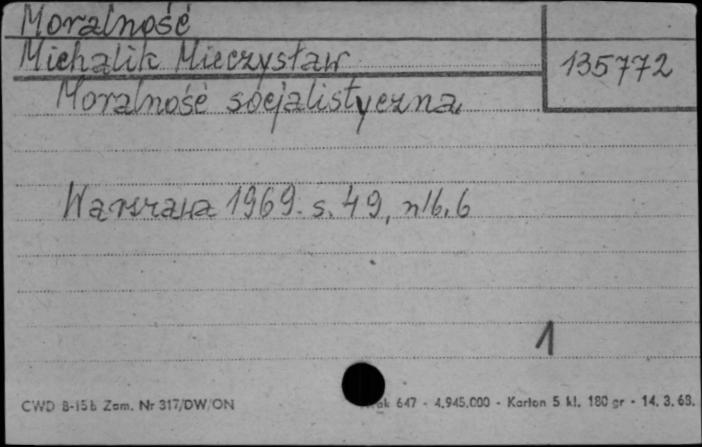 Moralność
Michalik Mieczysław
135772
Moralność socjalistyczna
Warszawa 1969. s. 49, nlb. 6
1
CWD B-15b Zam. Nr 317/DW/ON
647 - 4.945.000 - Karton 5 kl. 180 gr - 14. 3. 68.